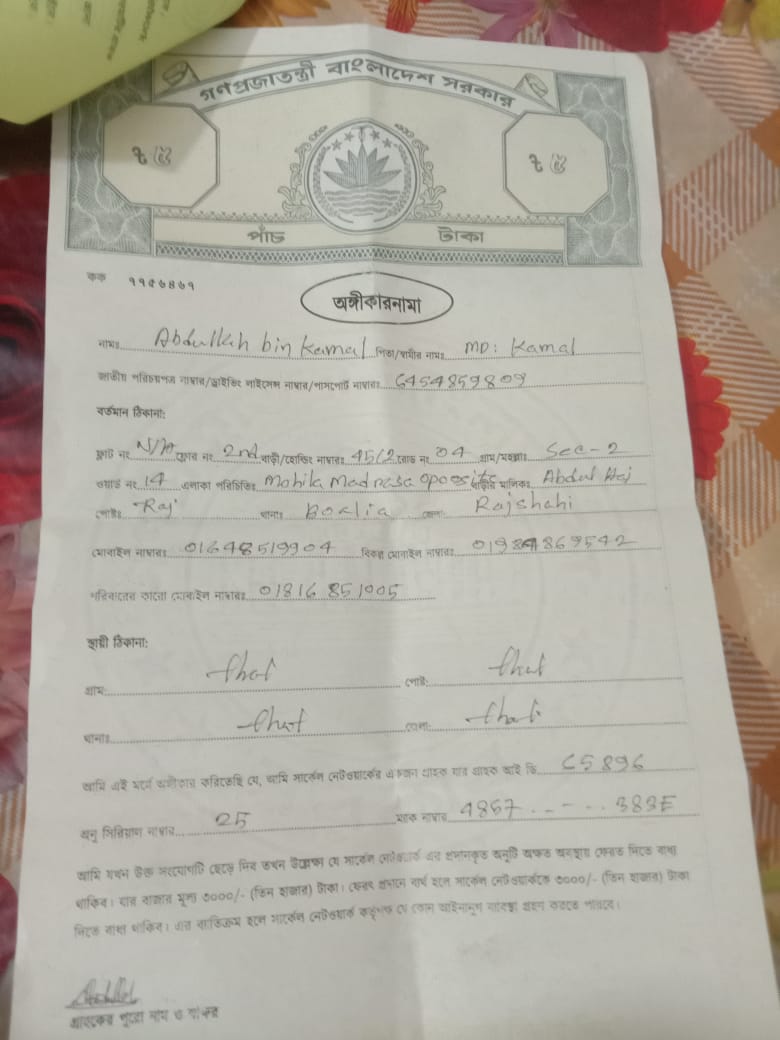 গণপ্রজাতন্ত্রী বাংলাদেশ সরকার
৳ ৫ ৳ ৫
পাঁচ টাকা
কক ৭৭৫৬৪৬৭
অঙ্গীকারনামা
নামঃ Abdullah bin Kamal পিতা/স্বামীর নামঃ MD: Kamal
জাতীয় পরিচয়পত্র নাম্বার/ড্রাইভিং লাইসেন্স নাম্বার/পাসপোর্ট নাম্বারঃ 6454859809
বর্তমান ঠিকানা:
ফ্লাট নং N/A ফ্লোর নং 2nd বাড়ী/হোল্ডিং নাম্বারঃ 45/2 রোড নং 04 গ্রাম/মহল্লাঃ Sec-2
ওয়ার্ড নং 14 এলাকা পরিচিতিঃ Mohila Madrasa oposite বাড়ীর মালিকঃ Abdul Hai
পোষ্টঃ Raj থানাঃ Boalia জেলাঃ Rajshahi
মোবাইল নাম্বারঃ 01648519904 বিকল্প মোবাইল নাম্বারঃ 01984869542
পরিবারের কারো মোবাইল নাম্বারঃ 01816851005
স্থায়ী ঠিকানা:
গ্রাম: পোষ্ট:
থানাঃ জেলা:
আমি এই মর্মে অঙ্গীকার করিতেছি যে, আমি সার্কেল নেটওয়ার্কের একজন গ্রাহক যার গ্রাহক আই ডি C5896
অনু সিরিয়াল নাম্বার 25 ম্যাক নাম্বার 4857.-...383E
আমি যখন উক্ত সংযোগটি ছেড়ে দিব তখন উল্লেখ্য যে সার্কেল নেটওয়ার্ক এর প্রদানকৃত অনুটি অক্ষত অবস্থায় ফেরত দিতে বাধ্য
থাকিব। যার বাজার মূল্য ৩০০০/- (তিন হাজার) টাকা। ফেরৎ প্রদানে ব্যর্থ হলে সার্কেল নেটওয়ার্ককে ৩০০০/- (তিন হাজার) টাকা
দিতে বাধ্য থাকিব। এর ব্যতিক্রম হলে সার্কেল নেটওয়ার্ক কতৃপক্ষ যে কোন আইনানুগ ব্যবস্থা গ্রহণ করতে পারবে।
Abdullah
গ্রাহকের পুরো নাম ও স্বাক্ষর